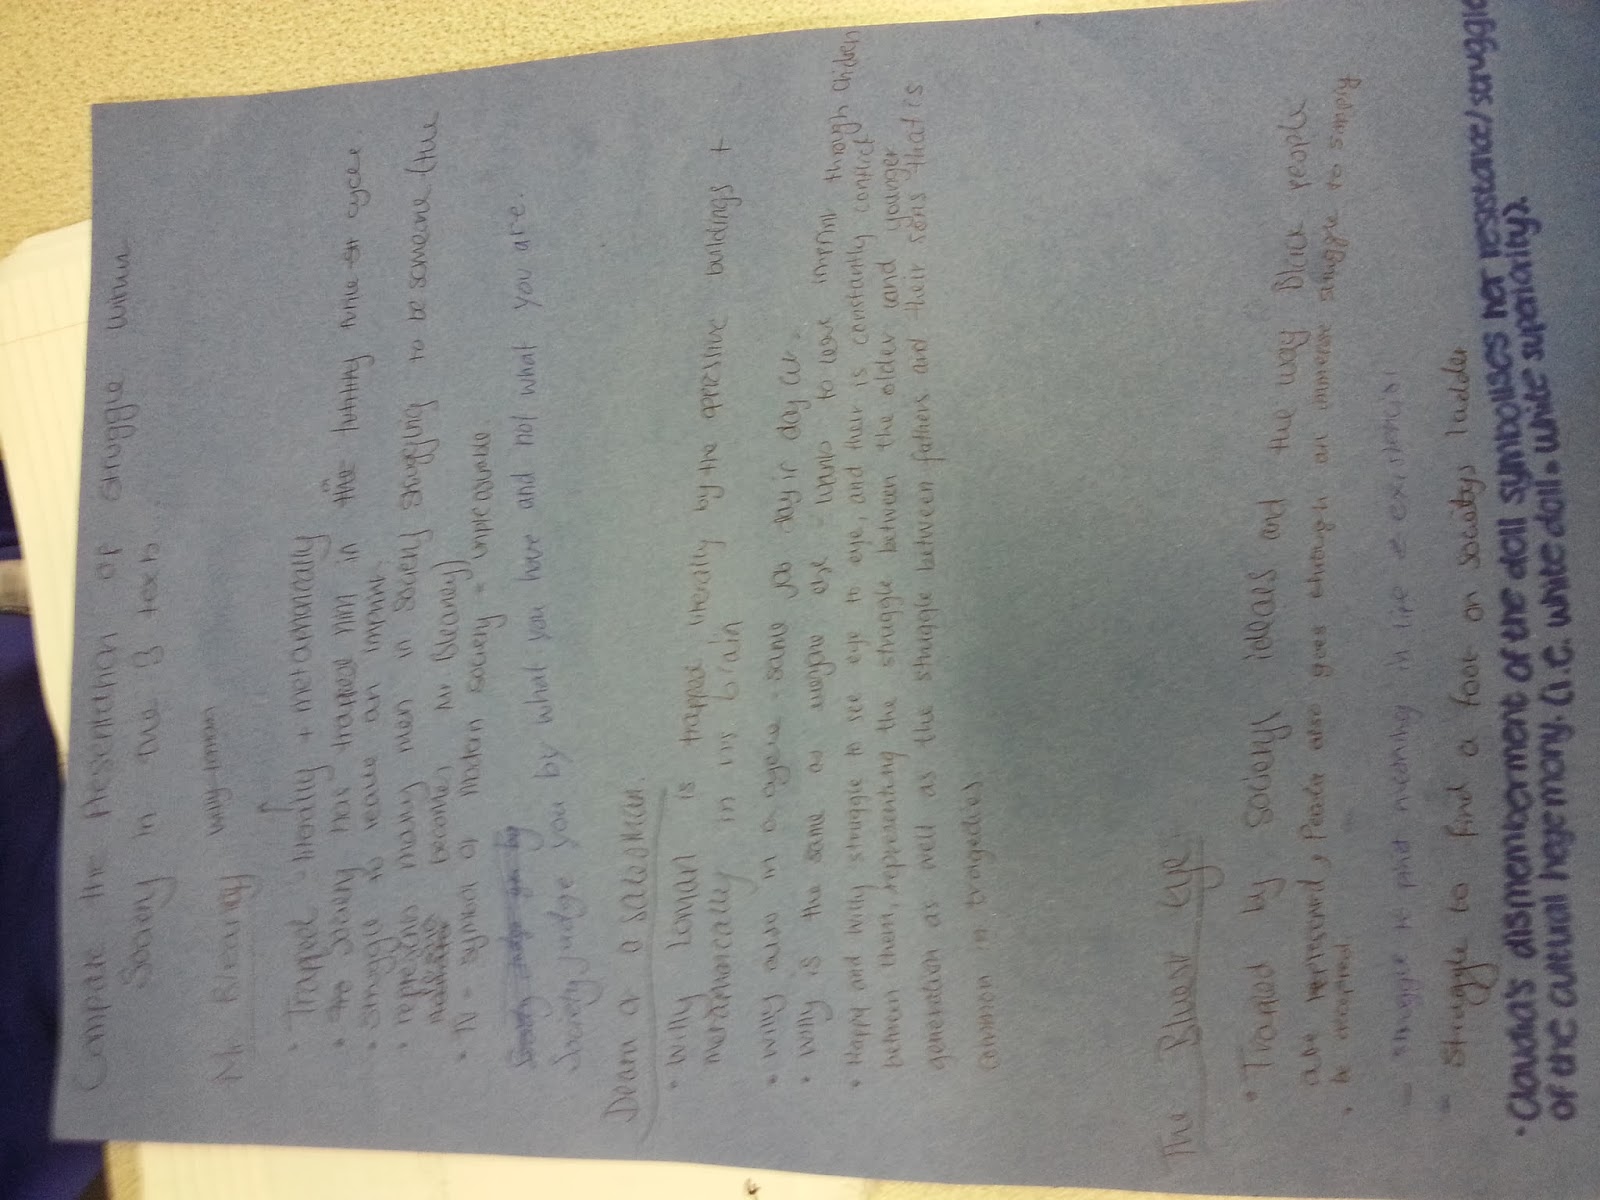 Compare the Presentation of struggle within
Society in the 3 texts.
Mr Bleaney
• Trapped - literally + metaphorically
• Society has trapped him in the futility cycle.
• struggle to leave an imprint.
• represents many men in society struggling to be someone (the
becomes Mr Bleaney)
• TV - symbol of modern society -
Society judge you by what you have and not what you are.
Death of a salesman.
• Willy Loman is trapped literally by the oppressive buildings +
metaphorically in his brain
• Willy also in a cycle - same job day in day out.
• Willy is the same as everyone else - wants to leave imprint through children
• Happy and Willy struggle to see eye to eye, and their is constantly conflict
between them, representing the struggle between the older and younger
generation as well as the struggle between fathers and their sons that is
common in tragedies
The Bluest Eye.
• Trapped by societys ideas and the way Black people
are represented, Pecola also goes through an immense struggle to simply
be accepted.
- struggle to find meaning in life & existence
- struggle to find a foot on societys ladder
• Claudia's dismemberment of the doll symbolises her resistance/struggle
of the cultural hegemony. (i.e. white doll = white superiority).